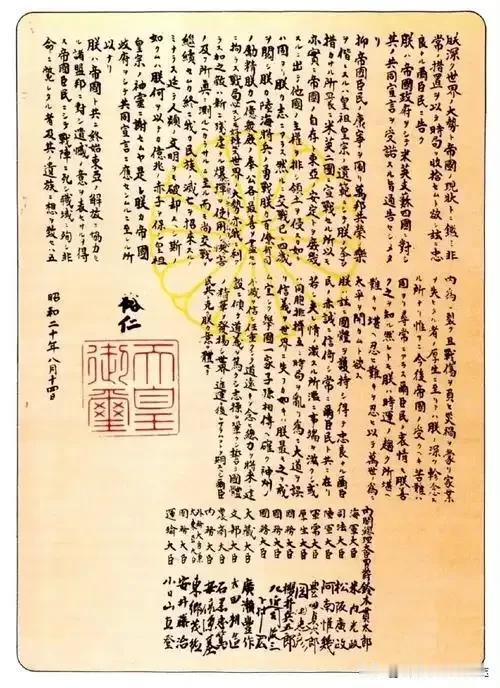 朕深ク世界ノ大勢ト帝國ノ現狀トニ鑑ミ非
常ノ措置ヲ以テ時局ヲ收拾セムト欲シ茲ニ忠
良ナル爾臣民ニ告ク
朕ハ帝國政府ヲシテ米英支蘇四國ニ對シ
其ノ共同宣言ヲ受諾スル旨通告セシメタリ
抑帝國臣民ノ康寧ヲ圖リ萬邦共榮ノ樂
ヲ偕ニスルハ皇祖皇宗ノ遺範ニシテ朕ノ拳々
措カサル所曩ニ米英二國ニ宣戰セル所以モ
亦實ニ帝國ノ自存ト東亞ノ安定トヲ庶幾
スルニ出テ他國ノ主權ヲ排シ領土ヲ侵スカ如キ
ハ固ヨリ朕カ志ニアラス然ルニ交戰已ニ四歳
ヲ閲シ朕カ陸海將兵ノ勇戰朕カ百僚有司
ノ勵精朕カ一億衆庶ノ奉公各最善ヲ盡セル
ニ拘ラス戰局必スシモ好轉セス世界ノ大勢亦我ニ利
アラス加之敵ハ新ニ殘虐ナル爆彈ヲ使用シテ慘害
ノ及フ所眞ニ測ルヘカラサルニ至ル而モ尚交戰ヲ
繼續セムカ終ニ我カ民族ノ滅亡ヲ招來スルノ
ミナラス延テ人類ノ文明ヲモ破却スヘシ斯ノ
如クムハ朕何ヲ以テカ億兆ノ赤子ヲ保シ皇祖
皇宗ノ神靈ニ謝セムヤ是レ朕カ帝國
政府ヲシテ共同宣言ニ應セシムルニ至レル所
以ナリ
朕ハ帝國ト共ニ終始東亞ノ解放ニ協力セ
ル諸盟邦ニ對シ遺憾ノ意ヲ表セサルヲ得
ス帝國臣民ニシテ戰陣ニ死シ職域ニ殉シ非
命ニ斃レタル者及其ノ遺族ニ想ヲ致セハ五
內爲ニ裂ク且戰傷ヲ負ヒ災禍ヲ蒙リ家業
ヲ失ヒタル者ノ厚生ニ至リテハ朕ノ深ク軫念ス
ル所ナリ惟フニ今後帝國ノ受クヘキ苦難ハ
固ヨリ尋常ニアラス爾臣民ノ衷情モ朕善
ク之ヲ知ル然レトモ朕ハ時運ノ趨ク所堪ヘ
難キヲ堪ヘ忍ヒ難キヲ忍ヒ以テ萬世ノ爲ニ
太平ヲ開カムト欲ス
朕ハ茲ニ國體ヲ護持シ得テ忠良ナル爾臣
民ノ赤誠ニ信倚シ常ニ爾臣民ト共ニ在リ
若シ夫レ情ノ激スル所濫ニ事端ヲ滋クシ或
ハ同胞排擠互ニ時局ヲ亂リ爲ニ大道ヲ誤
リ信義ヲ世界ニ失フカ如キハ朕最モ之ヲ戒
ム宜シク擧國一家子孫相傳ヘ確ク神州ノ不
滅ヲ信シ任重クシテ道遠キヲ念ヒ總力ヲ將來ノ建
設ニ傾ケ道義ヲ篤クシ志操ヲ鞏クシ誓テ國體
ノ精華ヲ發揚シ世界ノ進運ニ後レサラムコトヲ期スヘシ爾臣
民其レ克ク朕カ意ヲ體セヨ
裕仁
天皇御璽
昭和二十年八月十四日
內閣總理大臣男爵 鈴木貫太郎
海軍大臣 米內光政
司法大臣 松阪廣政
陸軍大臣 阿南惟幾
軍需大臣 豐田貞次郎
厚生大臣 岡田忠彥
國務大臣 櫻井兵五郎
國務大臣 左近司政三
國務大臣 下村宏
大藏大臣 廣瀨豐作
文部大臣 太田耕造
農商大臣 石黑忠篤
內務大臣 安倍源基
外務大臣兼大東亞大臣 東鄉茂德
國務大臣 安井藤治
運輸大臣 小日山直登